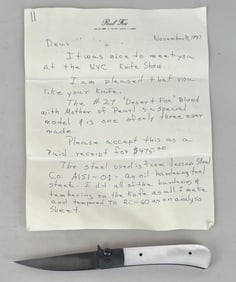 Paul Fox
November 9, 1997
Dear
It was nice to meet you
at the NYC Knife Show.
I am pleased that you
like your knife.
The #27 "Desert Fox" Blued
with Mother of Pearl is a special
model & is one of only three ever
made.
Please accept this as a
Paid receipt for $975.00
The steel used is from Jessop Steel
Co. AISI-01- an oil hardening tool
steel. I did all of the hardening &
tempering on the knife as all I make
and tempered to RC-60 as on analysis
sheet.